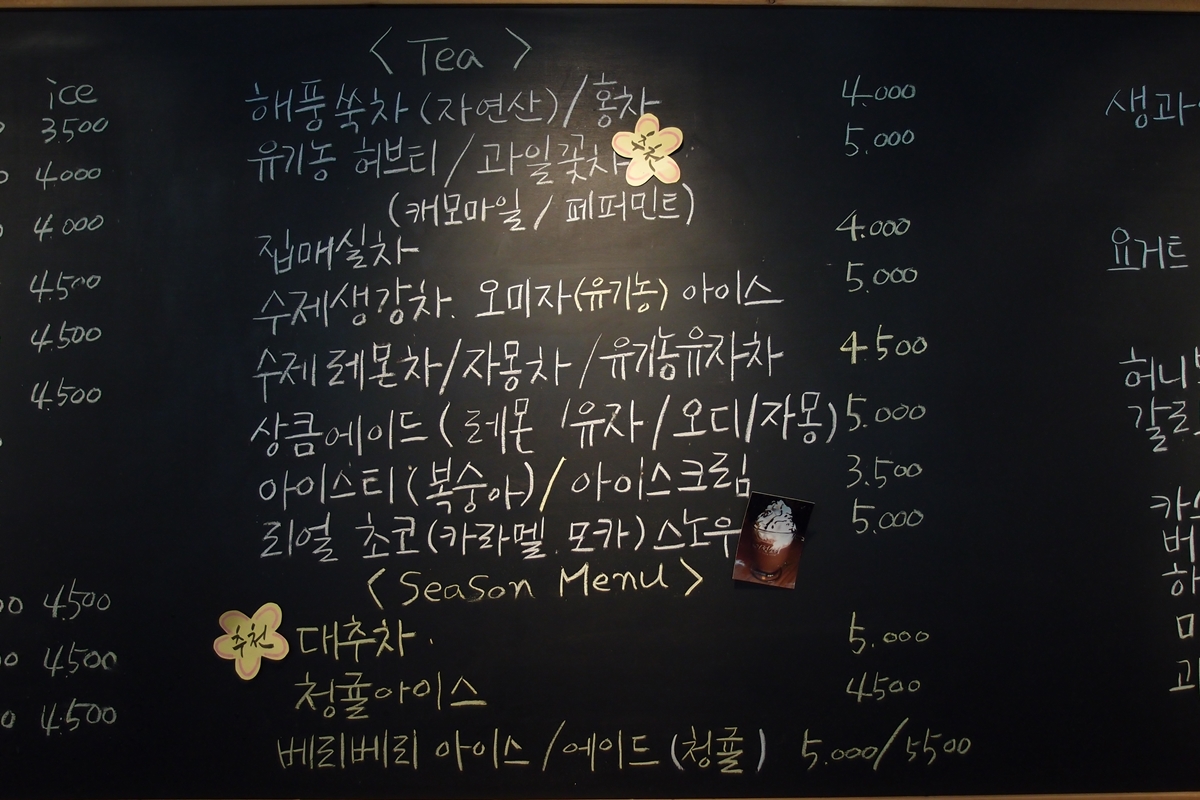 ice
3.500
4.000
4.000
4.500
4.500
4.500
4.500
4.500
4.500
< Tea >
해풍쑥차 (자연산) / 홍차 4.000
유기농 허브티 / 과일꽃차 5.000
(캐모마일 / 페퍼민트)
집매실차 4.000
수제생강차. 오미자(유기농) 아이스 5.000
수제 레몬차/자몽차 /유기농유자차 4500
상큼에이드 ( 레몬 /유자 / 오디/자몽) 5.000
아이스티(복숭아) / 아이스크림 3.500
리얼 초코(카라멜. 모카) 스노우 5.000
< Season Menu >
추천 대추차. 5.000
청귤아이스 4500
베리베리 아이스 /에이드 (청귤) 5.000/5500
생과
요거트
허니
갈로
카
버
하
미
고